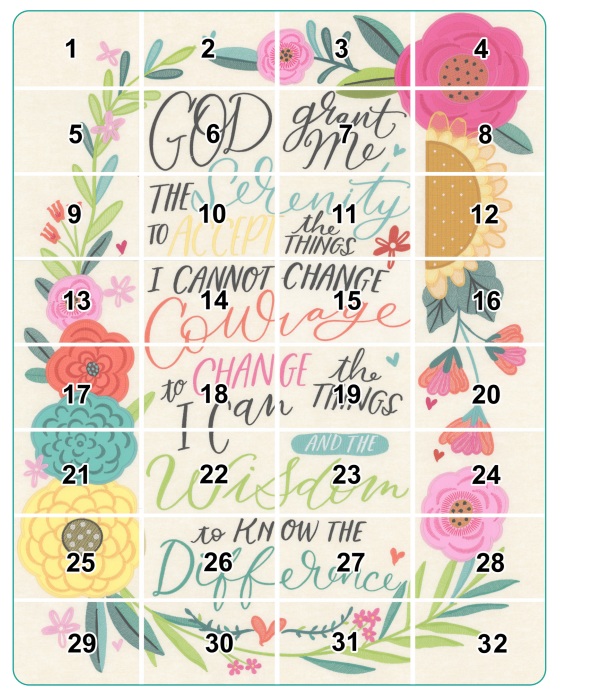 1 2 3 4
GOD grant Me
5 6 7 8
THE Serenity
9 10 11 12
TO ACCEPT the THINGS
I CANNOT CHANGE
13 14 15 16
Courage
to CHANGE the THINGS
17 18 19 20
I Can
AND THE
21 22 23 24
Wisdom
to KNOW THE
25 26 27 28
Difference
29 30 31 32